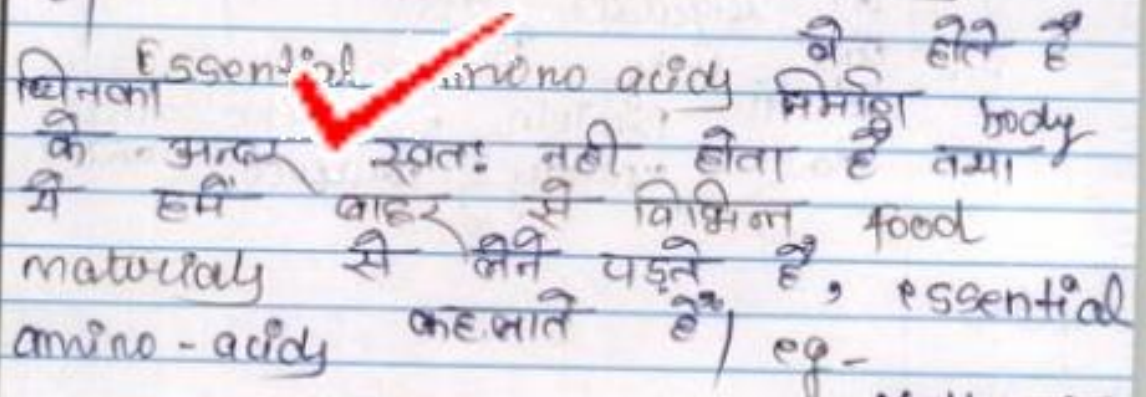 Essential amino acids वे होते हैं
जिनका निर्माण body
के अन्दर स्वतः नही होता है तथा
ये हमें बाहर से विभिन्न food
materials से लेने पड़ते हैं, essential
amino-acids कहलाते हैं। eg-